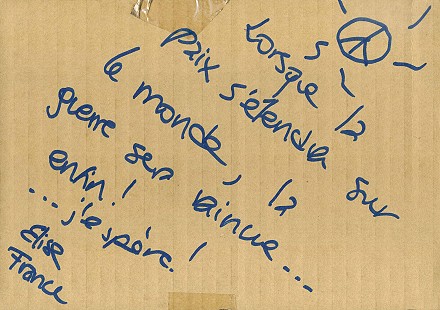 Lorsque la
Paix s'étendra sur
le monde, la
guerre sera vaincue...
enfin!
... j'espère.!
Elise
France